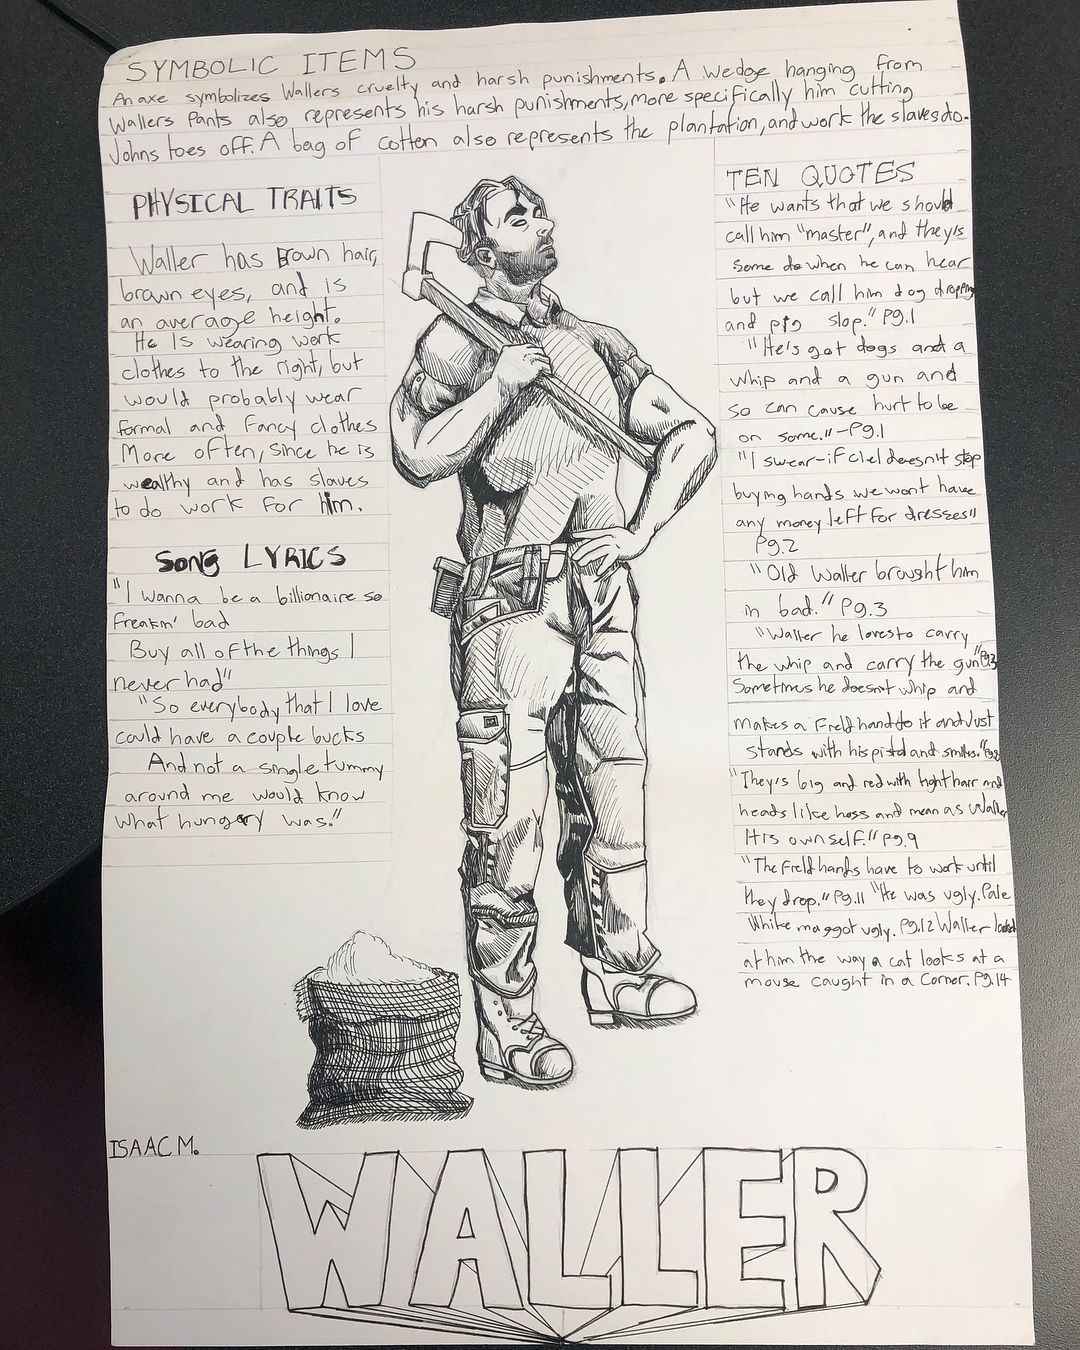 SYMBOLIC ITEMS
An axe symbolizes Wallers cruelty and harsh punishments. A wedge hanging from
Wallers Pants also represents his harsh punishments, more specifically him cutting
Johns toes off. A bag of cotton also represents the plantation, and work the slaves do.
PHYSICAL TRAITS
Waller has Brown hair,
brown eyes, and is
an average height.
He Is wearing work
clothes to the right, but
would probably wear
formal and Fancy clothes
More often, since he is
wealthy and has slaves
to do work For him.
SONG LYRICS
"I wanna be a billionaire so
Freakin' bad
Buy all of the things I
never had"
"So everybody that I love
could have a couple bucks
And not a single tummy
around me would know
what hungery was."
TEN QUOTES
"He wants that we should
call him "master", and they's
some do when he can hear
but we call him dog dropping
and pig slop." Pg.1
"He's got dogs and a
whip and a gun and
so can cause hurt to be
on some."-Pg.1
"I swear-if Clel doesn't stop
buying hands we wont have
any money left for dresses"
Pg.2
"Old Waller brought him
in bad." Pg.3
"Waller he loves to carry
the whip and carry the gun" Pg3
Sometimes he doesnt whip and
makes a Field hand do it and Just
stands with his pistol and smiles."
"They's big and red with tight hair and
heads like hoss and mean as Waller
His own self." Pg.9
"The Field hands have to work until
they drop." Pg.11 "He was ugly. Pale
White maggot ugly. Pg.12 Waller looked
at him the way a cat looks at a
mouse caught in a corner. Pg.14
ISAAC M.
WALLER